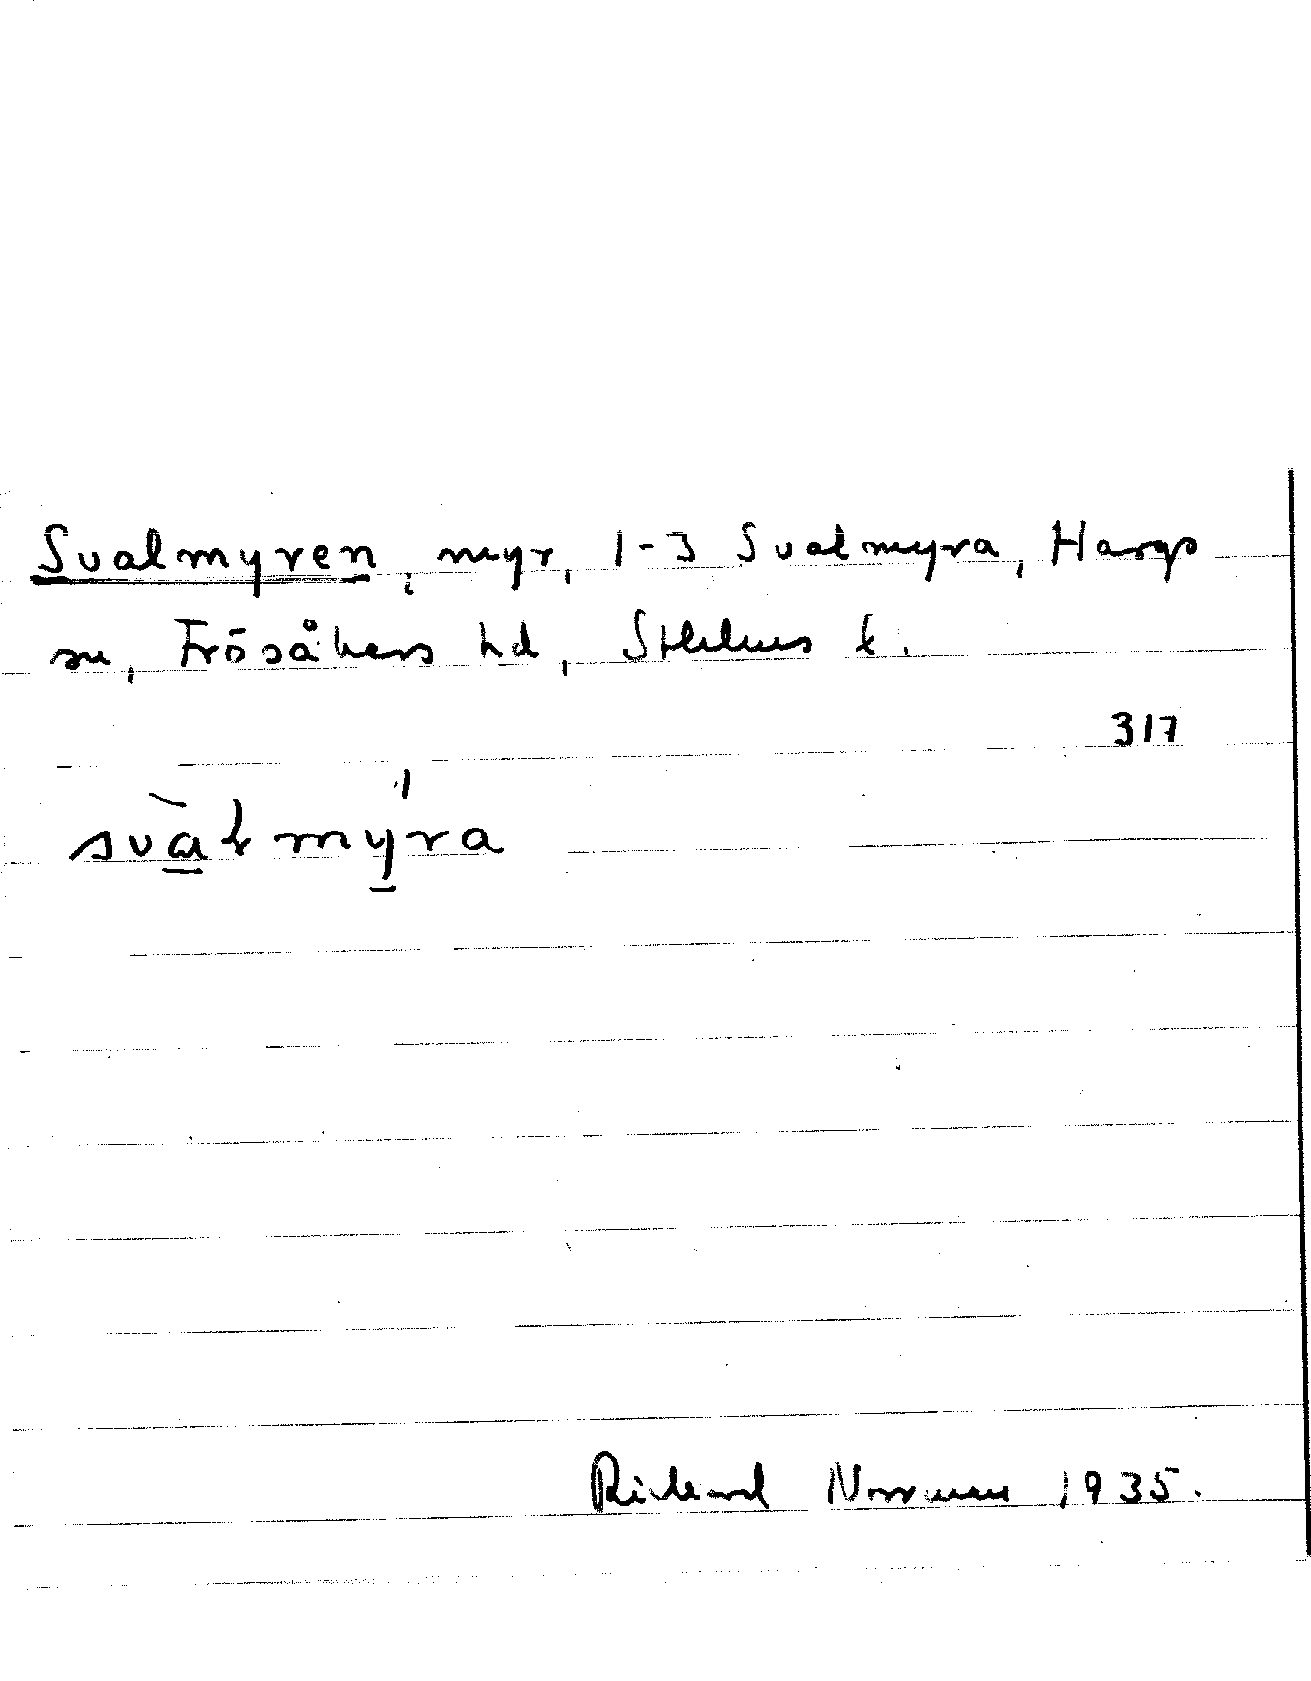 Svalmyren, myr, 1-3 Svalmyra, Hargs
sn, Frösåkers hd, Sthlms l.
317
svàlmýra
Rickard Norrman 1935.